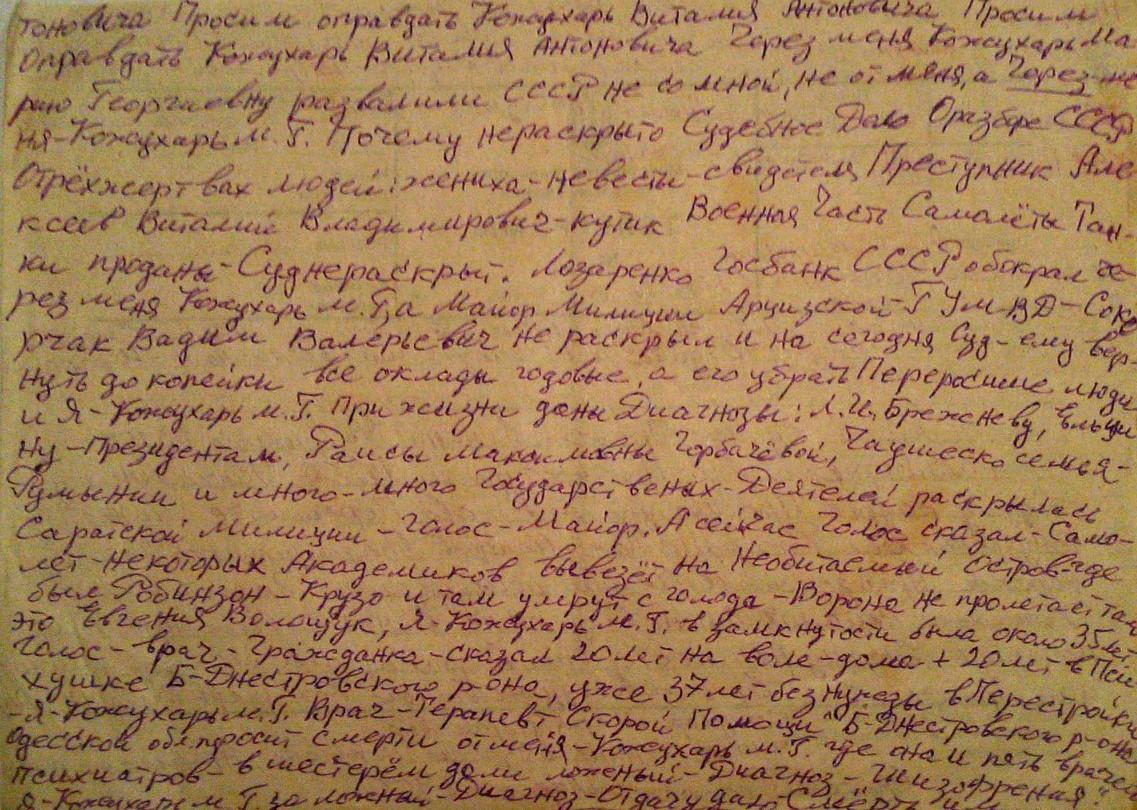 тоновича Просим оправдать Кожухарь Виталия Антоновича Просим
Оправдать Кожухарь Виталия Антоновича Через меня Кожухарь Ма-
рию Георгиевну развалили СССР не со мной, не от меня, а Через ме-
ня-Кожухарь м. Г. Почему нераскрыто Судебное Дело Оразбре СССР
Отрёхжертвах людей: жениха-невести-свидетеля Преступник Але-
ксеев Виталий Владимирович-кутик Военная Часть Самолёты Тан-
ки проданы-Суднераскрыт. Лозаренко Госбанк СССР обокрал че-
рез меня Кожухарь м. Г, а Майор Милиции Арцизской-ГУМВД-Соко
рчак Вадим Валерьевич не раскрыл и на сегодня Суд-ему вер-
нуть до копейки все оклады годовые, а его убрать Переросшие люди
и Я-Кожухарь м. Г. При жизни даны Диагнозы: Л. И. Брежневу, Ельци
ну-Президентам, Раисы Максимовны Горбачёвой, Чаушеско семья-
Румынии и много-много Государственых-Деятелей раскрылась
Саратской Милиции-Голос-Майор. А сейчас Голос сказал-Само-
лет-Некоторых Академиков вывезёт на Необитаемый Остров-где
был Робинзон-Крузо и там умрут с голода-Ворона не пролетает там
это Евгения Волощук, Я-Кожухарь м. Г. в замкнутости была около 35 лет
Голос-врач-Гражданка-сказал 20 лет на воле-дома + 20 лет в Пси
хушке Б-Днестровского р-она, уже 37 лет без нужды в Перестройки
-Я-Кожухарь м. Г. Врач-Терапевт Скорой Помощи Б-Днестровского р-она
Одесской обл. просит смерти от меня-Кожухарь м. Г. где она и пять врачей
психиатров-в шестерём дали ложный-Диагноз-Шизофрения"
Я-Кожухарь м. Г за ложный-Диагноз-Отдачу даю-Смерть